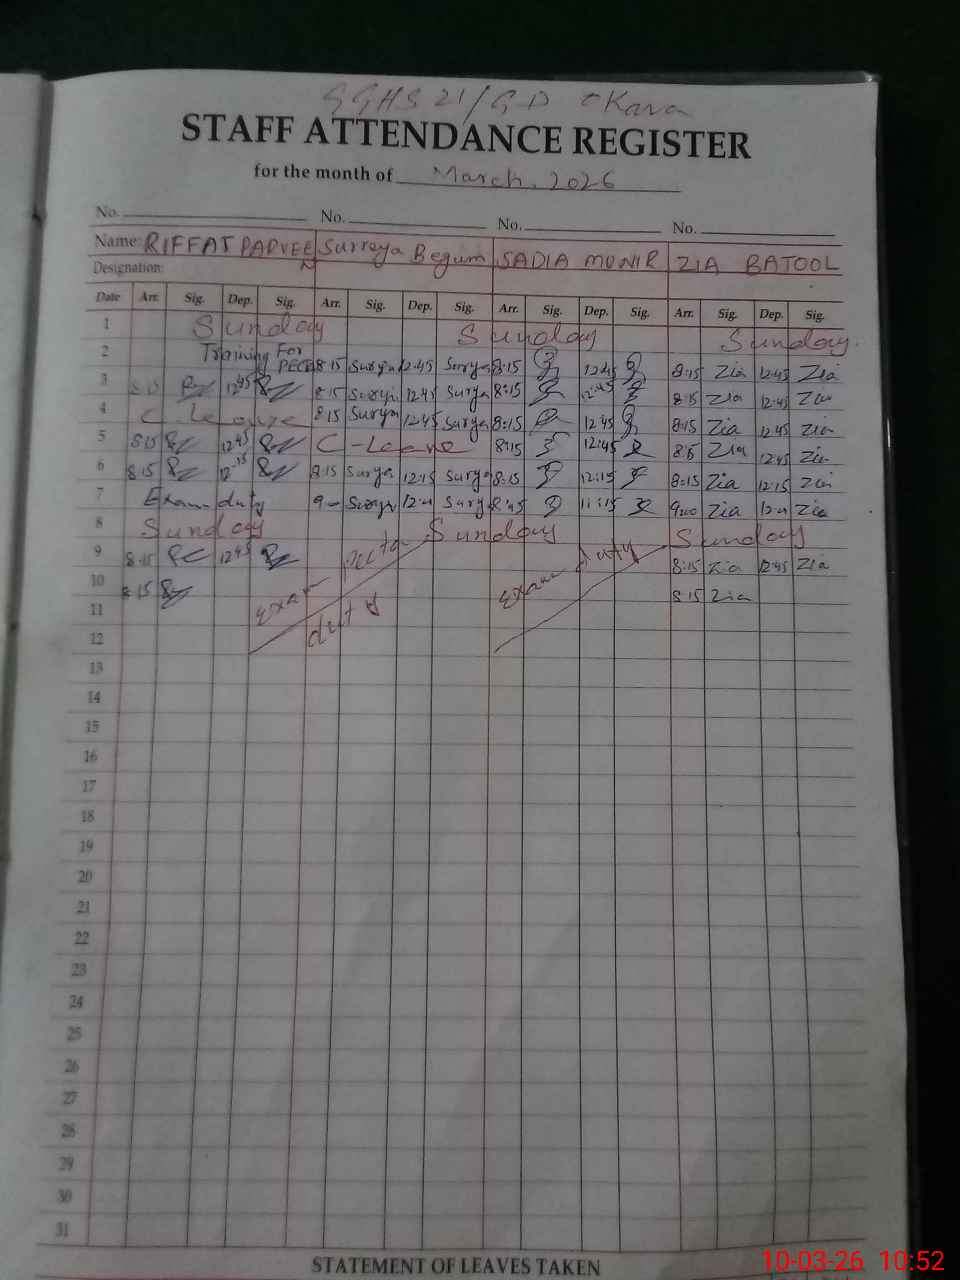 GGHS 21/GD Okara
STAFF ATTENDANCE REGISTER
for the month of March, 2026
No. No. No. No.
Name: RIFFAT PARVEEN Surraya Begum SADIA MUNIR ZIA BATOOL
Designation:
Date Arr. Sig. Dep. Sig. Arr. Sig. Dep. Sig. Arr. Sig. Dep. Sig. Arr. Sig. Dep. Sig.
1 Sunday Sunday Sunday.
2 Training For PECTA 8:15 Surya 12:45 Surya 8:15 12:45 8:15 Zia 12:45 Zia
3 8:15 12:45 8:15 Surya 12:45 Surya 8:15 12:45 8:15 Zia 12:45 Zia
4 C Leave 8:15 Surya 12:45 Surya 8:15 12:45 8:15 Zia 12:45 Zia
5 8:15 12:45 C-Leave 8:15 12:45 8:15 Zia 12:45 Zia
6 8:15 12:15 8:15 Surya 12:15 Surya 8:15 12:15 8:15 Zia 12:15 Zia
7 Exam duty Surya Surya 8:45 11:15 9:00 Zia Zia
8 Sunday Sunday Sunday
9 8:15 12:45 Exam Pecta duty Exam duty 8:15 Zia 12:45 Zia
10 8:15 8:15 Zia
11
12
13
14
15
16
17
18
19
20
21
22
23
24
25
26
27
28
29
30
31
STATEMENT OF LEAVES TAKEN
10-03-26 10:52